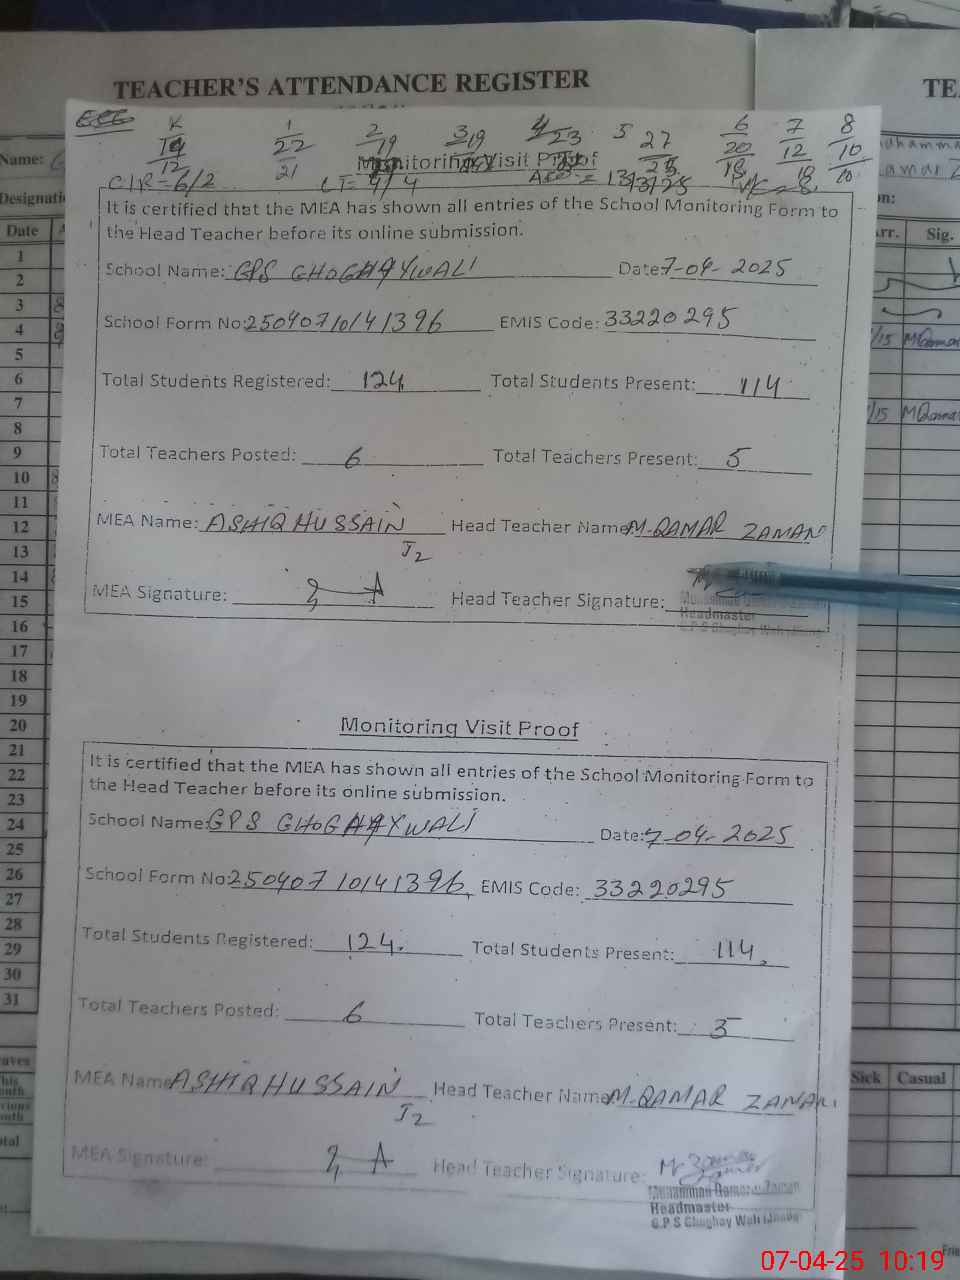 TEACHER'S ATTENDANCE REGISTER
TE
Name:
Designati
Date
1
2
3
4
5
6
7
8
9
10
11
12
13
14
15
16
17
18
19
20
21
22
23
24
25
26
27
28
29
30
31
ECE K 1 2 3 4 5 6 7 8
22 19 19 23 27 20 12 10
12 21 18 10
C/R = 6/2 LT = 4/4
Monitoring Visit Proof
It is certified that the MEA has shown all entries of the School Monitoring Form to
the Head Teacher before its online submission.
School Name: GPS GHOGHAYWALI Date: 7-04-2025
School Form No: 25040710141396 EMIS Code: 33220295
Total Students Registered: 124 Total Students Present: 114
Total Teachers Posted: 6 Total Teachers Present: 5
MEA Name: ASHIQ HUSSAIN Head Teacher Name M-QAMAR ZAMAN
J2
MEA Signature: Head Teacher Signature:
Headmaster
Monitoring Visit Proof
It is certified that the MEA has shown all entries of the School Monitoring Form to
the Head Teacher before its online submission.
School Name: GPS GHOGHAYWALI Date: 7-04-2025
School Form No: 25040710141396 EMIS Code: 33220295
Total Students Registered: 124. Total Students Present: 114
Total Teachers Posted: 6 Total Teachers Present: 5
MEA Name ASHIQ HUSSAIN Head Teacher Name M-QAMAR ZAMAN
J2
MEA Signature: Head Teacher Signature:
Headmaster
G.P.S Ghughay Wali
Arr. Sig.
Sick Casual
07-04-25 10:19